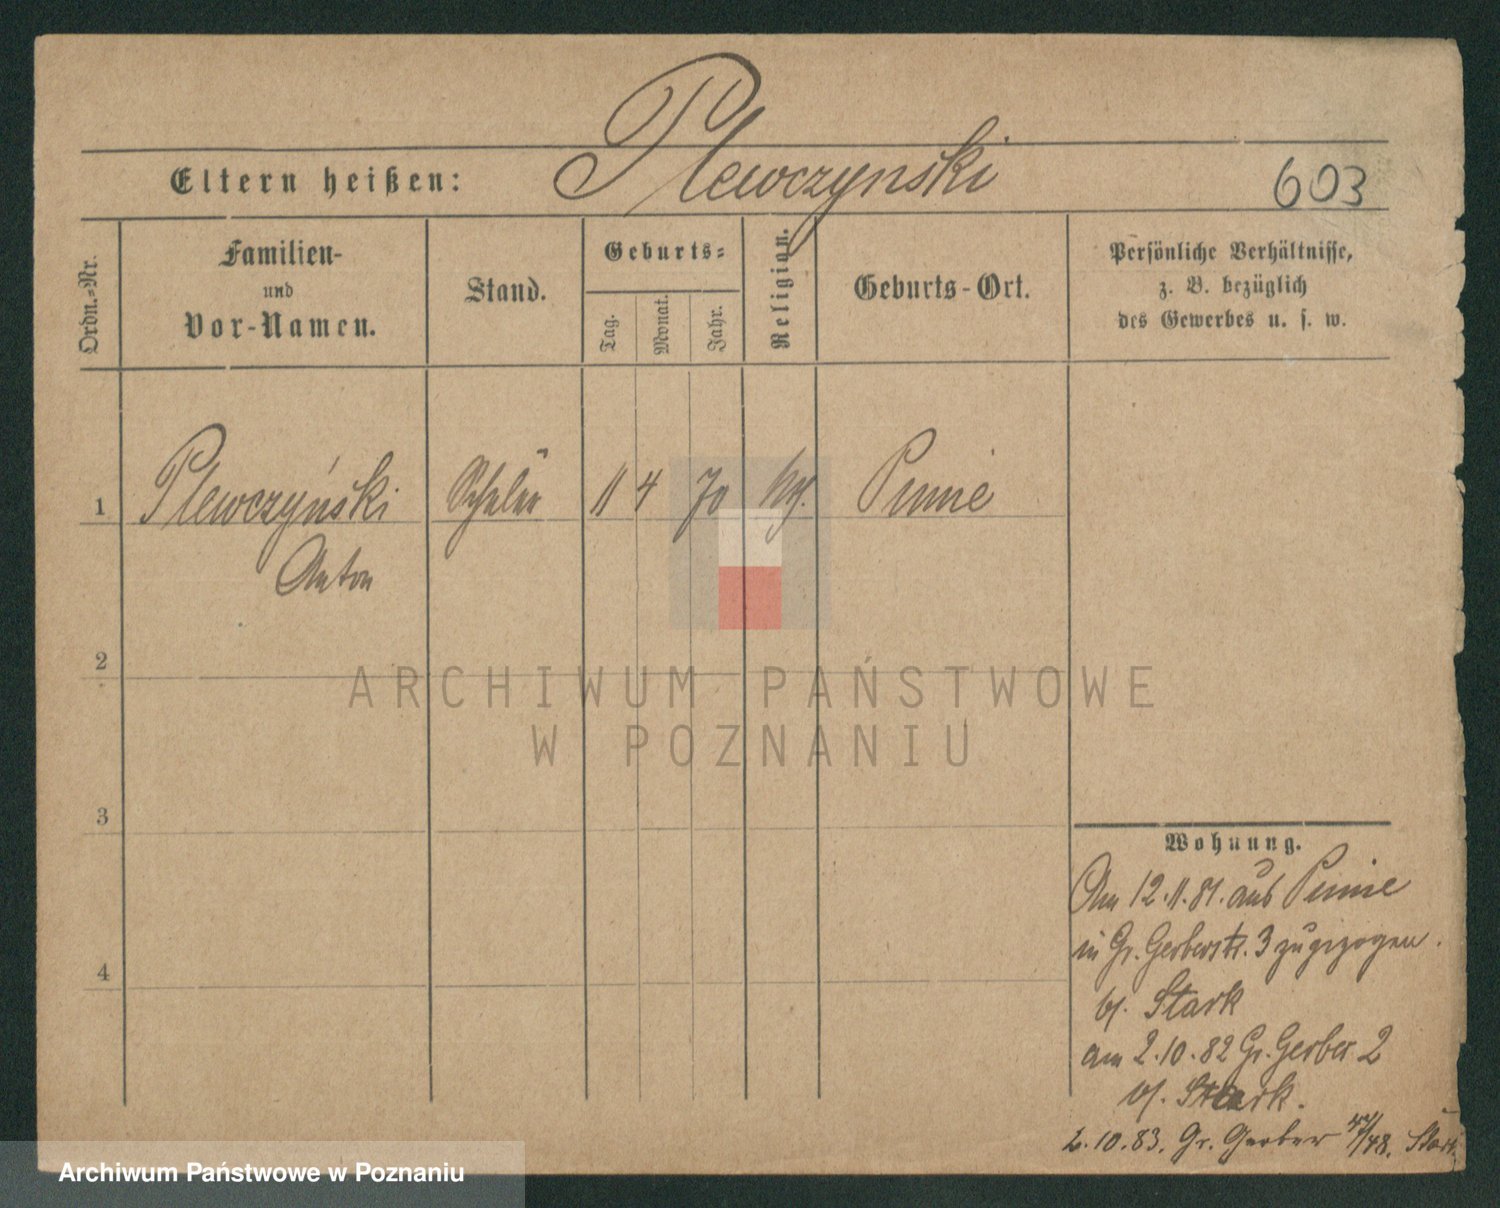 Plewczynski
Eltern heißen:
603
Ordn.-Nr.
Familien-
und
Vor-Namen.
Stand.
Geburts-
Tag.
Monat.
Jahr.
Religion.
Geburts-Ort.
Persönliche Verhältnisse,
z. B. bezüglich
des Gewerbes u. s. w.
1 Plewczyński Schüler 11 4 70 Pinne
Anton
2
3
4
Wohnung.
Am 12.11.81. aus Pinne
in Gr. Gerberstr. 3 zugezogen.
b/. Stark
am 2.10.82 Gr. Gerber 2
b/. Stark.
2.10.83. Gr. Gerber 47/48. Stark
ARCHIWUM PAŃSTWOWE
W POZNANIU
Archiwum Państwowe w Poznaniu